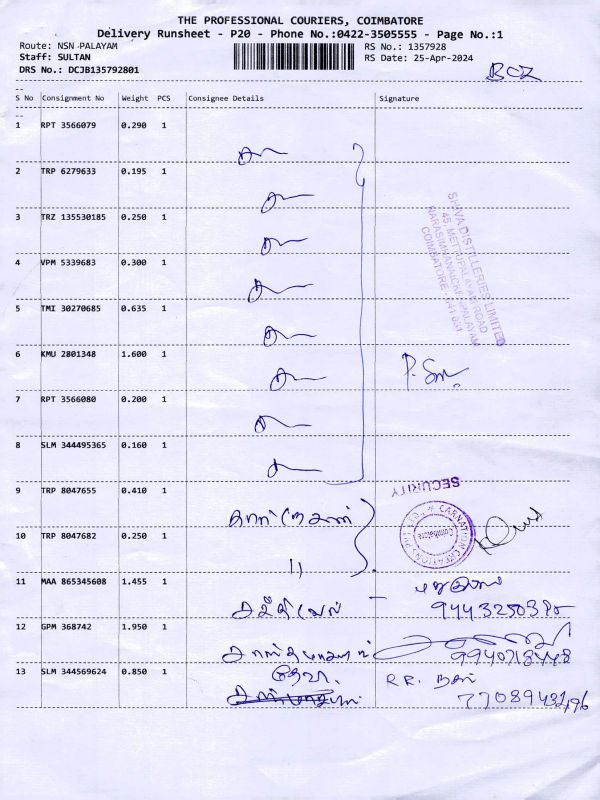 THE PROFESSIONAL COURIERS, COIMBATORE
Delivery Runsheet - P20 - Phone No.:0422-3505555 - Page No.:1
Route: NSN PALAYAM
RS No.: 1357928
Staff: SULTAN
RS Date: 25-Apr-2024
DRS No.: DCJB135792801
S No Consignment No Weight PCS Consignee Details Signature
1 RPT 3566079 0.290 1
2 TRP 6279633 0.195 1
3 TRZ 135530185 0.250 1
SHIVA DISTILLERIES LIMITED
45, METTUPALAYAM ROAD
NARASIMHANAICKENPALAYAM
COIMBATORE
4 VPM 5339683 0.300 1
5 TMI 30270685 0.635 1
6 KMU 2801348 1.600 1
7 RPT 3566080 0.200 1
8 SLM 344495365 0.160 1
SECURITY
9 TRP 8047655 0.410 1
Coimbatore
10 TRP 8047682 0.250 1
11 MAA 865345608 1.455 1
சக்திவேல்
12 GPM 368742 1.950 1
9940718448
13 SLM 344569624 0.850 1
தேவா.
R.R. நகர்